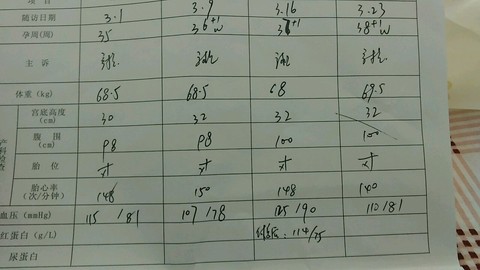 项 目 3.9 3.16 3.23
随访日期 3.1
孕周(周) 35 36⁺¹w 38⁺¹w
主 诉
体重(kg) 68.5 68.5 68 69.5
宫底高度(cm) 30 32 32 32
腹 围(cm) 98 98 100 100
胎 位 头 头 头 头
胎心率(次/分钟) 148 150 148 140
血压(mmHg) 115/81 107/78 /90 110/81
红蛋白(g/L) 114/75
尿蛋白